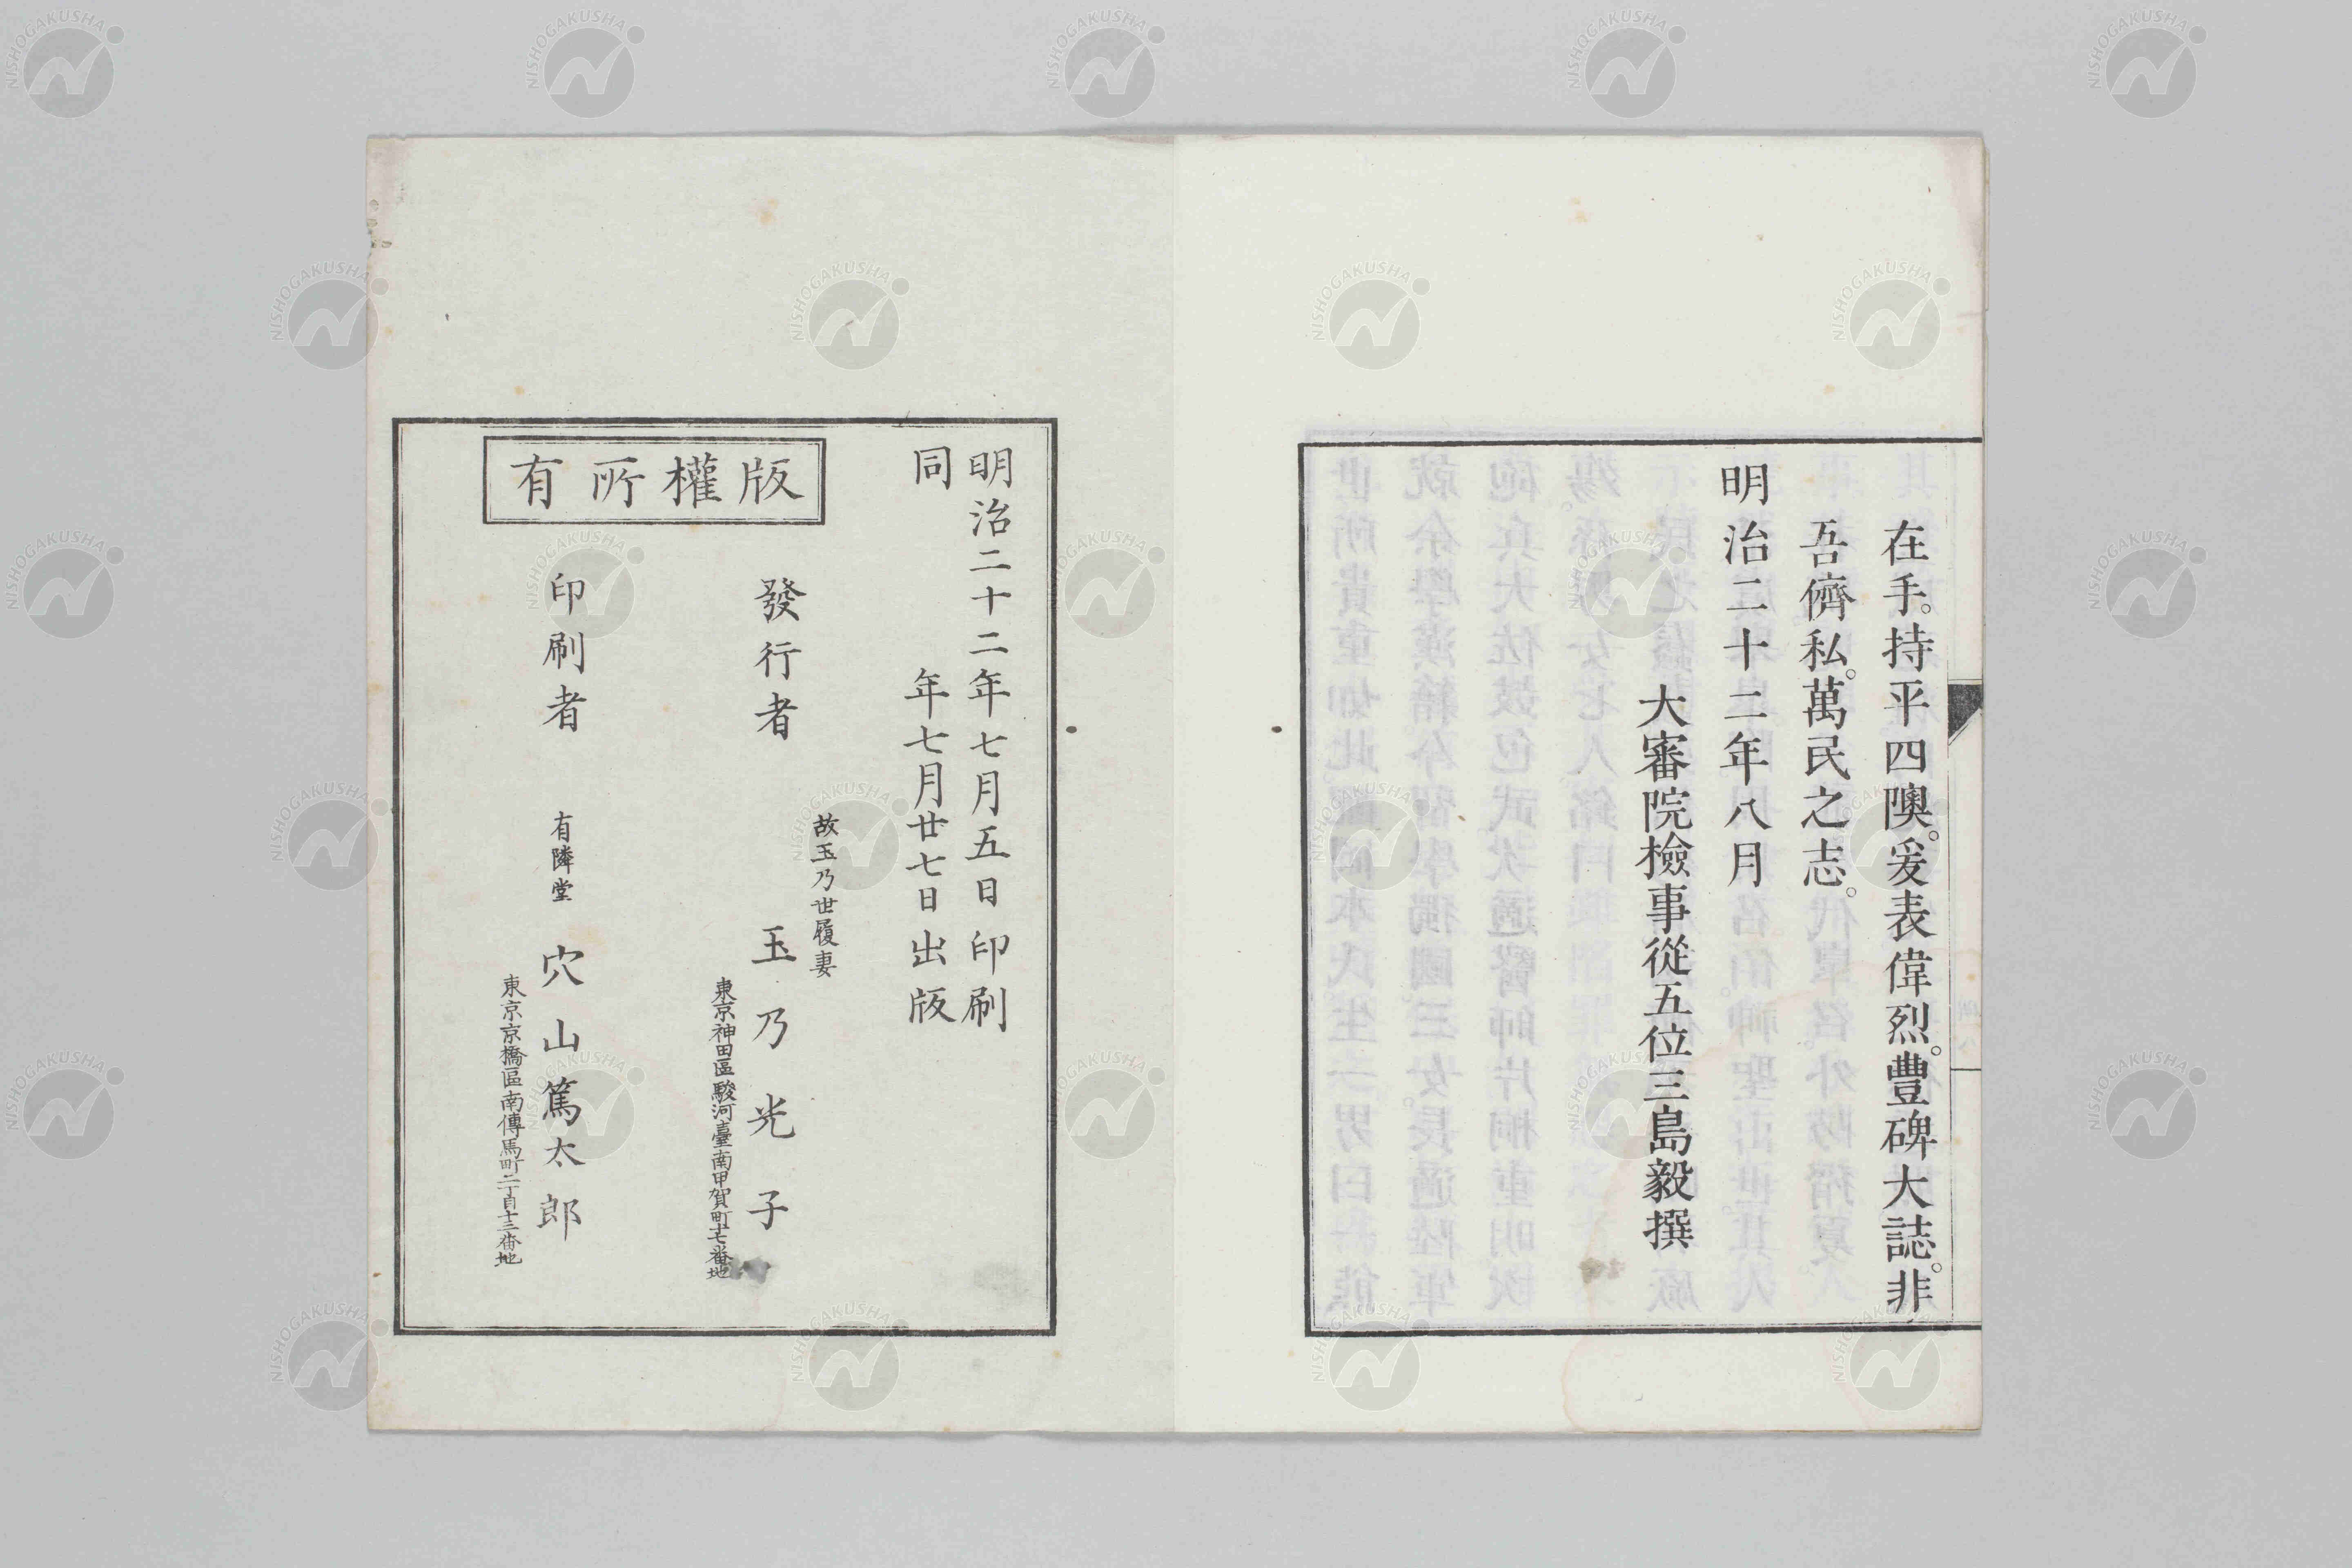 在手。持平四隩。爰表偉烈。豐碑大誌。非
吾儕私。萬民之志。
明治二十二年八月
大審院檢事從五位三島毅撰
明治二十二年七月五日印刷
同年七月廿七日出版
版權所有
故玉乃世履妻
發行者 玉乃光子
東京神田區駿河臺南甲賀町十七番地
印刷者 有隣堂 穴山篤太郎
東京京橋區南傳馬町二丁目十三番地
NISHOGAKUSHA